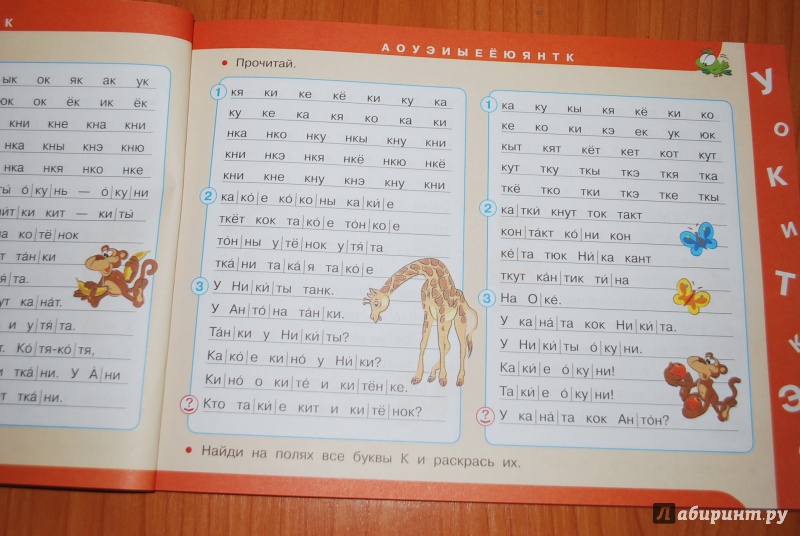 К
ык ок як ак ук
юк ок ёк ик ёк
кни кне кна кни
нка кны кнэ кню
нка нкя нко нке
ты́ о́|ку|нь — о́|ку|ни
ки кит — ки|ты́
ко|тё|нок
тáн|ки
ка|нáт.
и у|тя́|та.
Ко́|тя-ко́|тя,
ткá|ни. У А́|ни
ткá|ни.
А О У Э И Ы Е Ё Ю Я Н Т К
• Прочитай.
1 кя ки ке кё ки ку ка
ку ке ка кя ко ка ки
нка нко нку нкы кну кни
кни нкэ нкя нкё нкю нкё
кни кне кну кнэ кну кни
2 ка|ко́|е ко́|ко|ны ка|ки́|е
ткёт кок та|ко́|е то́н|ко|е
то́н|ны у|тё|нок у|тя́|та
ткá|ни та|кá|я та|ко́|е
3 У Ни|ки́|ты танк.
У Ан|то́|на тáн|ки.
Тáн|ки у Ни|ки́|ты?
Ка|ко́|е ки|но́ у Ни́|ки?
Ки|но́ о ки|те́ и ки|тён|ке.
? Кто та|ки́|е кит и ки|тё|нок?
1 ка ку кы кя кё ки ко
ке ко ки кэ ек ук юк
кыт кят кёт кет кот кут
кут тку ткы ткэ ткя тка
ткё тко тки ткэ тке ткы
2 ка|тки́ кнут ток такт
кон|тáкт ко́|ни кон
ке́|та тюк Ни́|ка кант
ткут кáн|тик ти́|на
3 На О|ке́.
У ка|нá|та кок Ни|ки́|та.
У Ни|ки́|ты о́|ку|ни.
Ка|ки́|е о́|ку|ни!
Та|ки́|е о́|ку|ни!
? У ка|нá|та кок Ан|то́н?
• Найди на полях все буквы К и раскрась их.
У
О
К
И
Т
К
Э
Лабиринт.ру